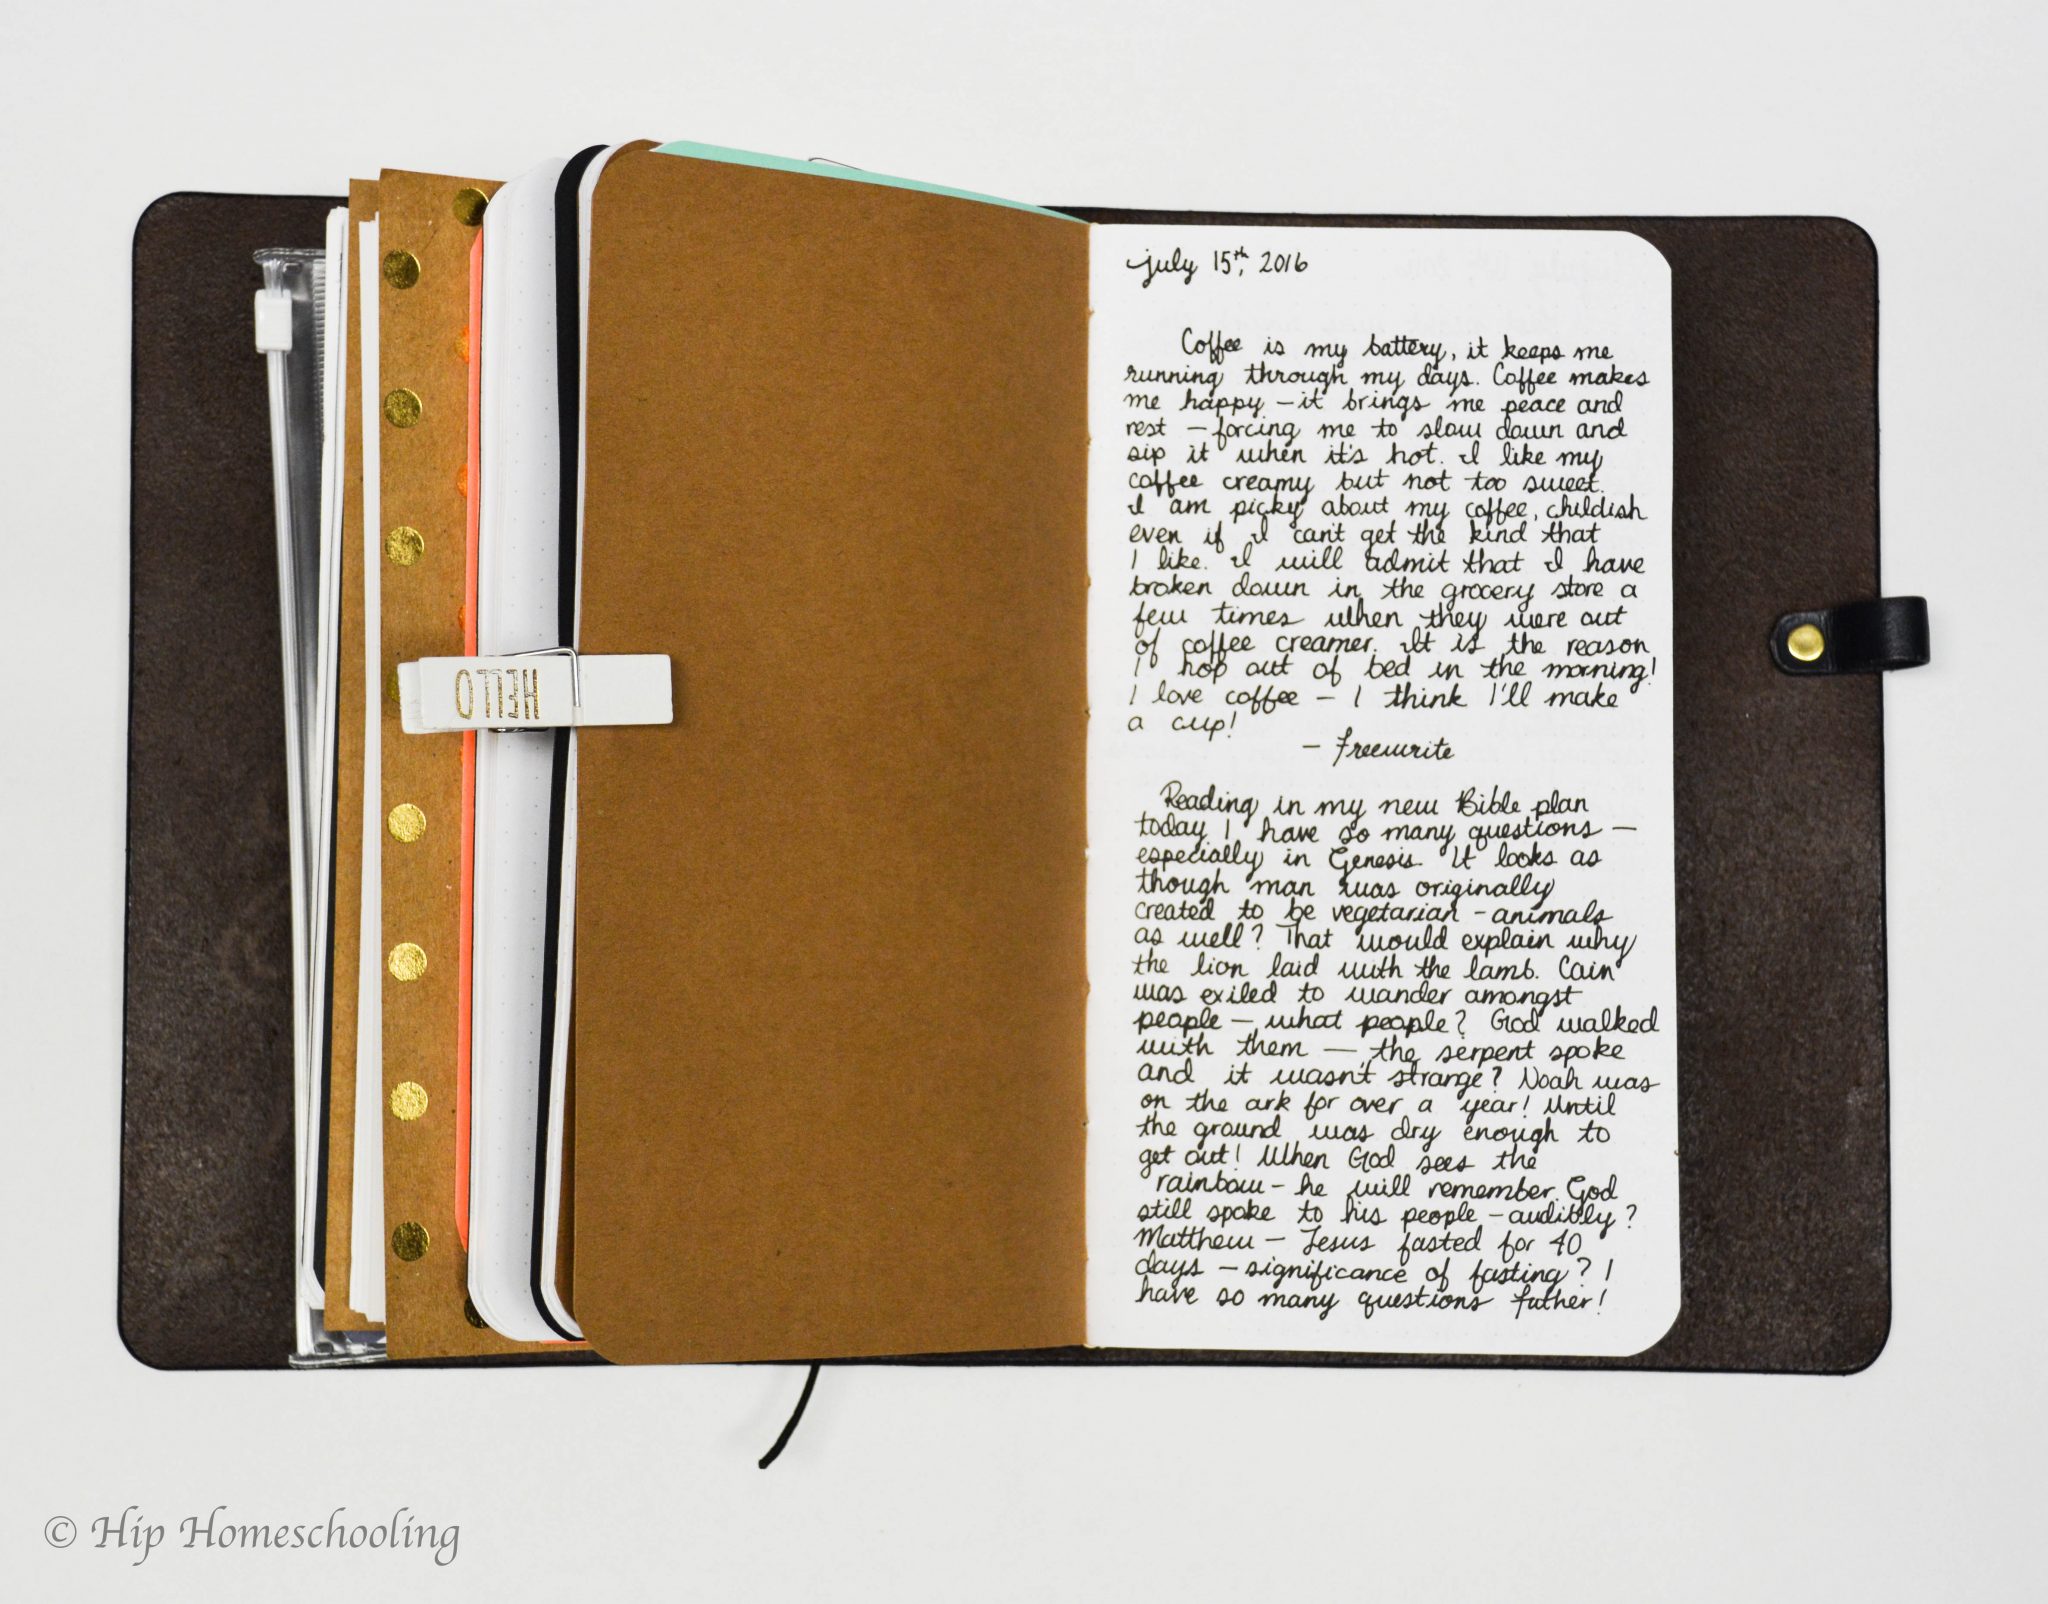 HELLO
July 15th, 2016
Coffee is my battery, it keeps me
running through my days. Coffee makes
me happy – it brings me peace and
rest – forcing me to slow down and
sip it when it's hot. I like my
coffee creamy but not too sweet.
I am picky about my coffee, childish
even if I can't get the kind that
I like. I will admit that I have
broken down in the grocery store a
few times when they were out
of coffee creamer. It is the reason
I hop out of bed in the morning!
I love coffee – I think I'll make
a cup!
– Freewrite
Reading in my new Bible plan
today I have so many questions –
especially in Genesis. It looks as
though man was originally
created to be vegetarian – animals
as well? That would explain why
the lion laid with the lamb. Cain
was exiled to wander amongst
people – what people? God walked
with them – the serpent spoke
and it wasn't strange? Noah was
on the ark for over a year! Until
the ground was dry enough to
get out! When God sees the
rainbow – he will remember. God
still spoke to his people – audibly?
Matthew – Jesus fasted for 40
days – significance of fasting? I
have so many questions Father!
© Hip Homeschooling